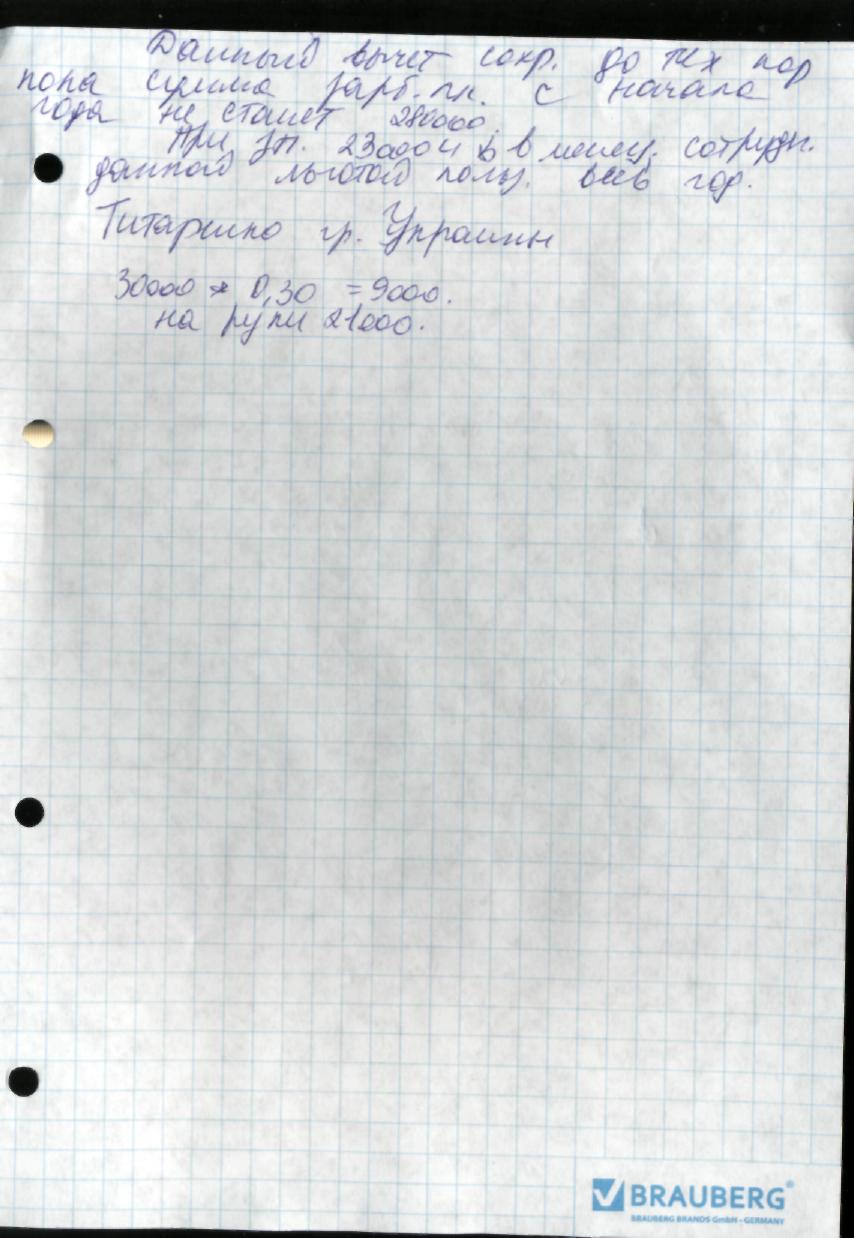 Данный вычет сохр. до тех пор
пока сумма зарб. пл. с начала
года не станет 280000.
При зп. 23000 в месяц. сотрудн.
данной льготой польз. весь год.
Титаренко гр. Украины
30000 * 0,30 = 9000.
на руки 21000.
BRAUBERG®
BRAUBERG BRANDS GmbH - GERMANY